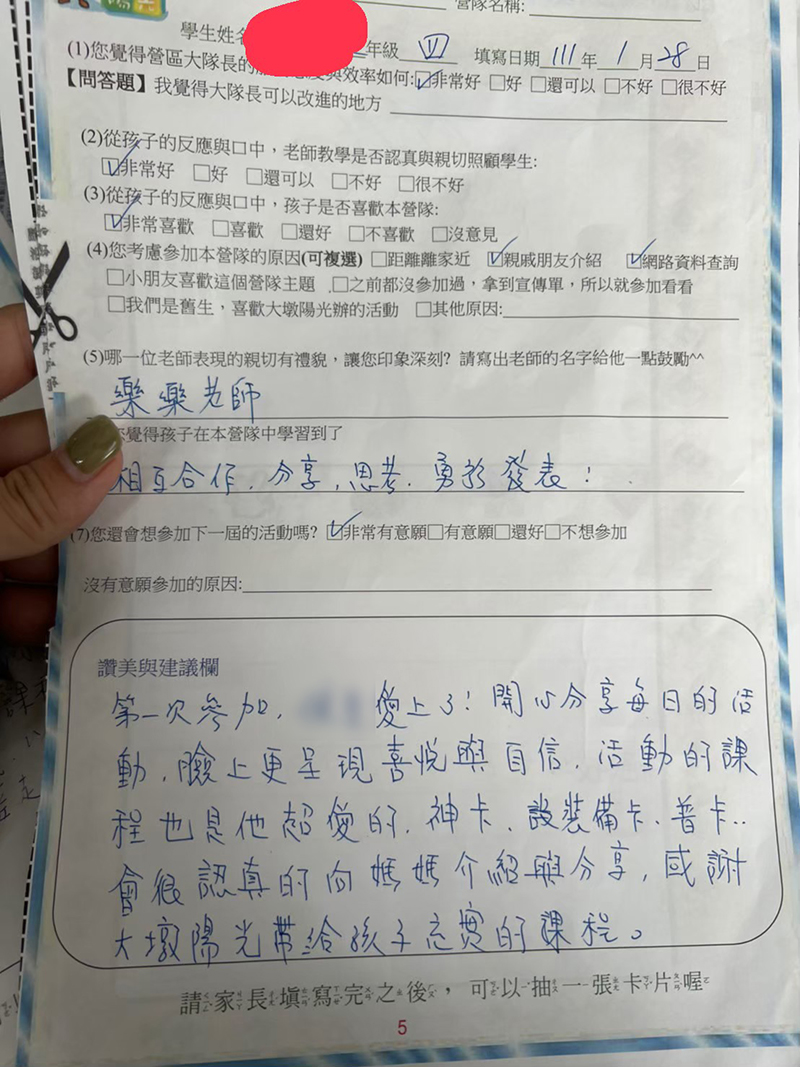 營隊名稱:
學生姓名 年級 四 填寫日期 111 年 1 月 28 日
(1)您覺得營區大隊長的服務態度與效率如何:☑非常好 □好 □還可以 □不好 □很不好
【問答題】我覺得大隊長可以改進的地方
(2)從孩子的反應與口中，老師教學是否認真與親切照顧學生:
☑非常好 □好 □還可以 □不好 □很不好
(3)從孩子的反應與口中，孩子是否喜歡本營隊:
☑非常喜歡 □喜歡 □還好 □不喜歡 □沒意見
(4)您考慮參加本營隊的原因(可複選) □距離離家近 ☑親戚朋友介紹 ☑網路資料查詢
□小朋友喜歡這個營隊主題 □之前都沒參加過，拿到宣傳單，所以就參加看看
□我們是舊生，喜歡大墩陽光辦的活動 □其他原因:
(5)哪一位老師表現的親切有禮貌，讓您印象深刻? 請寫出老師的名字給他一點鼓勵^^
樂樂老師
您覺得孩子在本營隊中學習到了
相互合作、分享、思考、勇於發表！
(7)您還會想參加下一屆的活動嗎? ☑非常有意願□有意願□還好□不想參加
沒有意願參加的原因:
讚美與建議欄
第一次參加， 愛上了！開心分享每日的活
動，臉上更呈現喜悅與自信，活動的課
程也是他超愛的，神卡、設裝備卡、普卡..
會很認真的向媽媽介紹與分享，感謝
大墩陽光帶給孩子充實的課程。
請家長填寫完之後，可以抽一張卡片喔
5